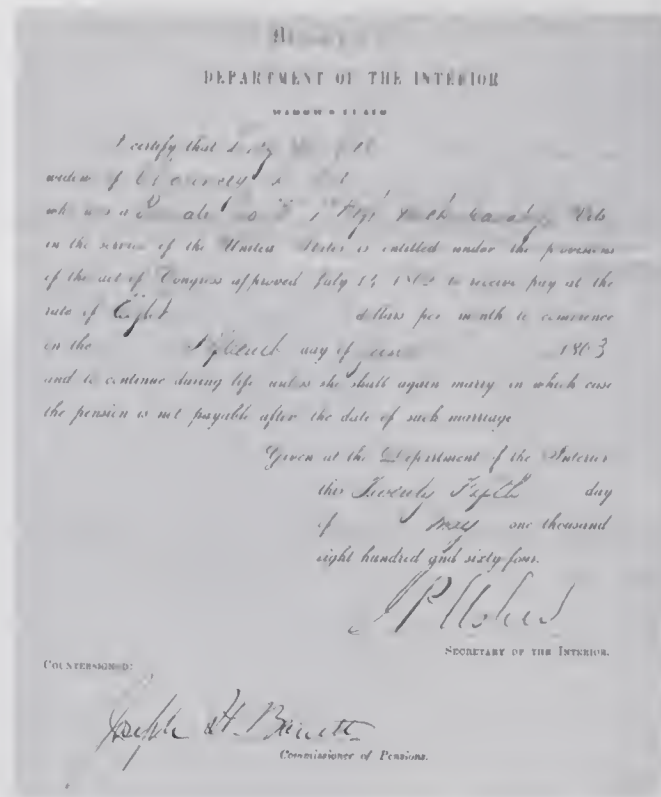 DEPARTMENT OF THE INTERIOR
WIDOW'S CLAIM
I certify that
widow of
who was a
in the service of the United States is entitled under the provisions
of the act of Congress approved July 14 1862 to receive pay at the
rate of Eight dollars per month to commence
on the day of 1863
and to continue during life unless she shall again marry in which case
the pension is not payable after the date of such marriage
Given at the Department of the Interior
this Twenty Fifth day
of May one thousand
eight hundred and sixty four.
J P Usher
SECRETARY OF THE INTERIOR.
COUNTERSIGNED:
Joseph H. Barrett
Commissioner of Pensions.